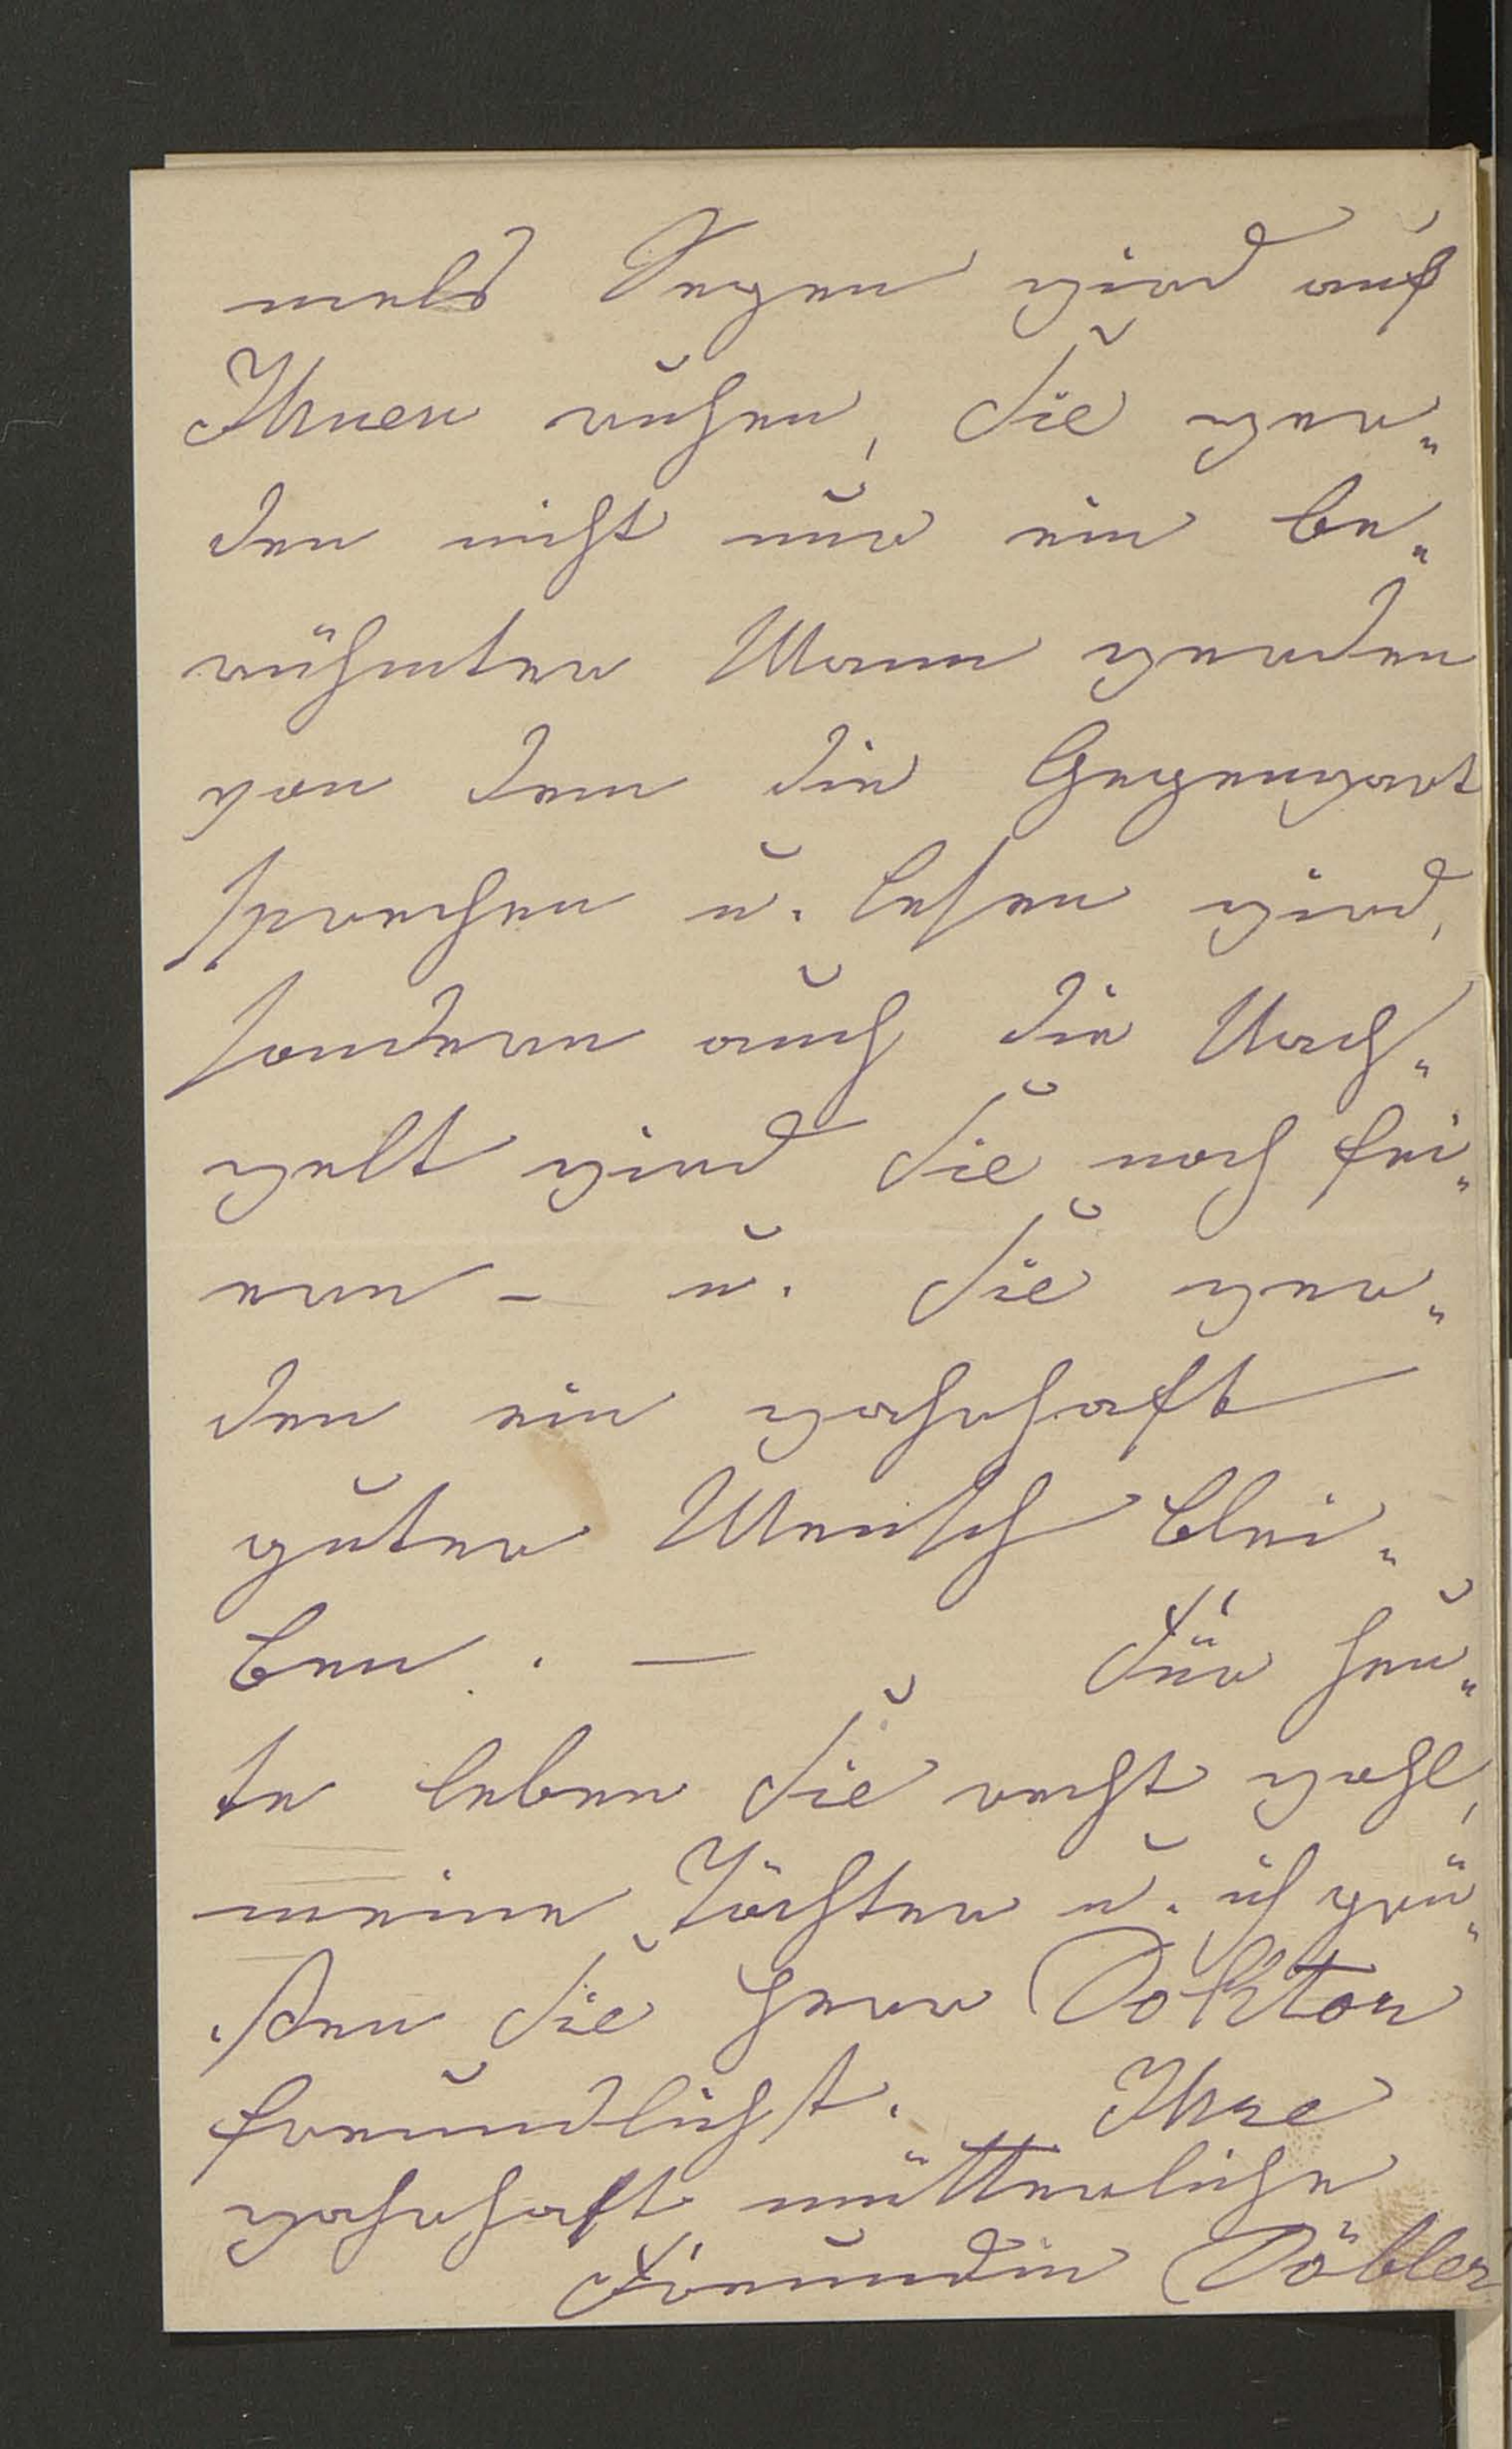 mels Segen wird auf
Ihnen ruhen, Sie wer„
den nicht nur ein be„
rühmter Mann werden
von dem die Gegenwart
sprechen u. lesen wird,
sondern auch die Nach„
welt wird Sie noch fei„
ern – u. Sie wer„
den ein wahrhaft
guter Mensch blei„
ben. — Für heu„
te leben Sie recht wohl,
meine Töchter u. ich grü„
ßen Sie Herr Doktor
freundlichst. Ihre
wahrhaft mütterliche
Freundin Döbler